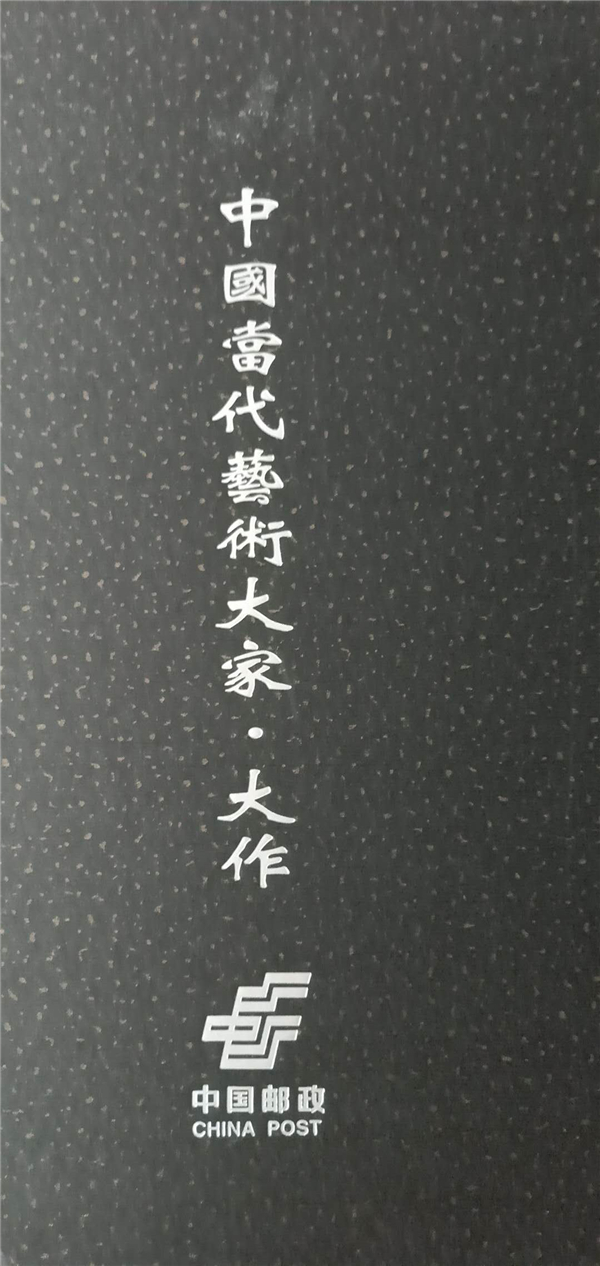 中國當代藝術大家·大作
中国邮政
CHINA POST